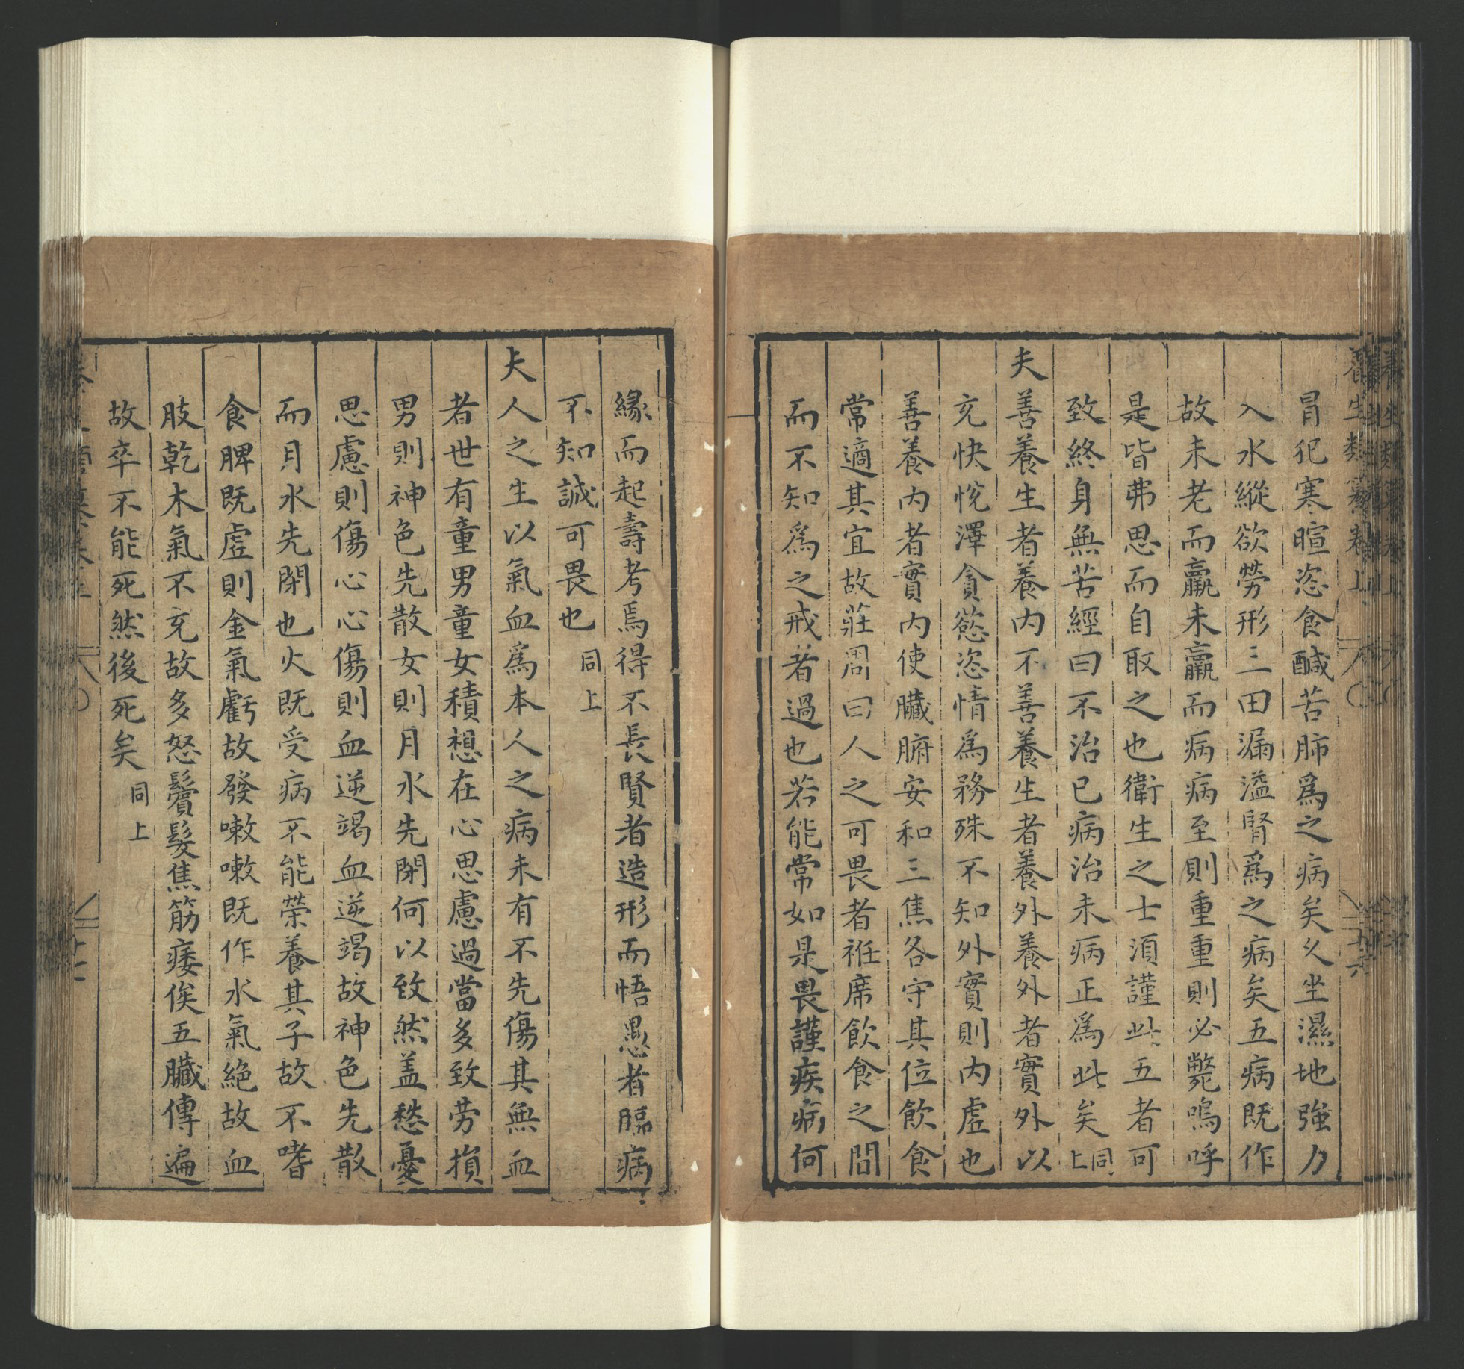 冒犯寒暄恣食醎苦肺爲之病矣久坐濕地強力
入水縱欲勞形三田漏溢腎爲之病矣五病既作
故未老而羸未羸而病病至則重重則必斃嗚呼
是皆弗思而自取之也衛生之士須謹此五者可
致終身無苦經曰不治已病治未病正爲此矣同上
夫善養生者養內不善養生者養外養外者實外以
充快悅澤貪慾恣情爲務殊不知外實則內虛也
善養內者實內使臟腑安和三焦各守其位飲食
常適其宜故莊周曰人之可畏者袵席飲食之間
而不知爲之戒者過也若能常如是畏謹疾病何
緣而起壽考焉得不長賢者造形而悟愚者臨病
不知誠可畏也同上
夫人之生以氣血爲本人之病未有不先傷其無血
者世有童男童女積想在心思慮過當多致劳損
男則神色先散女則月水先閉何以致然盖愁憂
思慮則傷心心傷則血逆竭血逆竭故神色先散
而月水先閉也火既受病不能榮養其子故不嗜
食脾既虛則金氣虧故發嗽嗽既作水氣絕故血
肢乾木氣不充故多怒鬢髮焦筋痿俟五臟傳遍
故卒不能死然後死矣同上